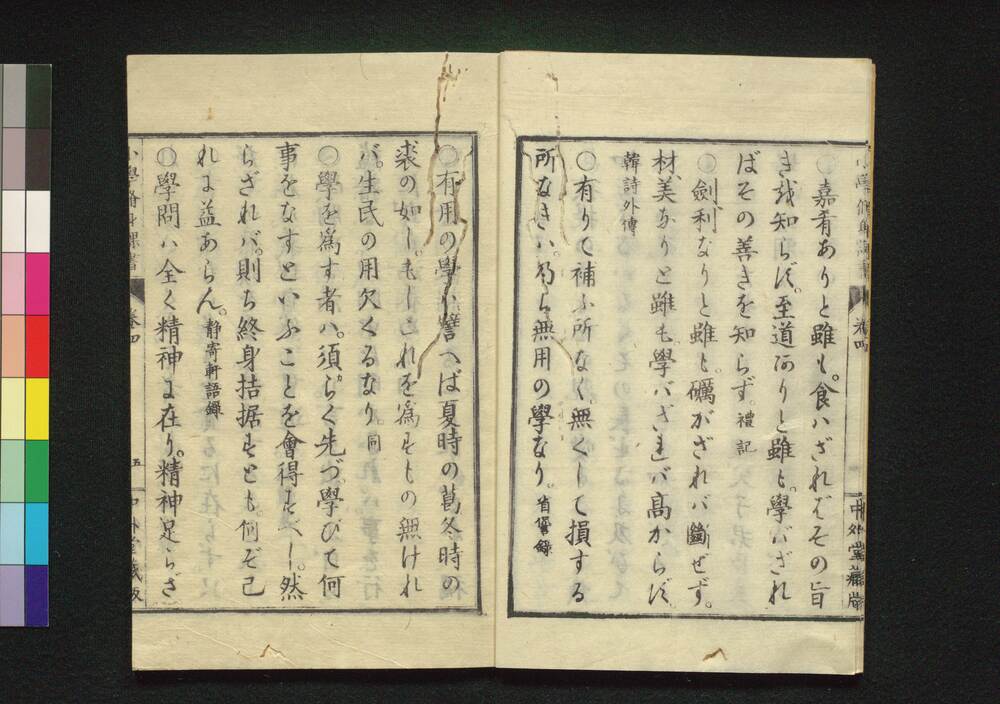 ○嘉肴ありと雖も。食ハざれバその旨
き越知らず。至道ありと雖も。學バざれ
ばその善きを知らず。禮記
○劍利なりと雖も。礪がざれバ斷ぜず。
材美なりと雖も。學バざれバ高からず。
韓詩外傳
○有りて補ふ所なく。無くして損する
所なきハ。乃ち無用の學なり。省諐錄
○有用の學ハ譬へば夏時の葛冬時の
裘の如し。もしこれを爲すもの無けれ
バ。生民の用欠くるなり。同
○學を爲す者ハ。須らく先づ。學びて何
事をなすといふことを會得すべし。然
らざれバ。則ち終身拮据すとも。何ぞ己
れに益あらん。靜寄軒語錄
○學問ハ全く精神に在り。精神足らざ
小學脩身課書
卷四
五
中外堂藏版